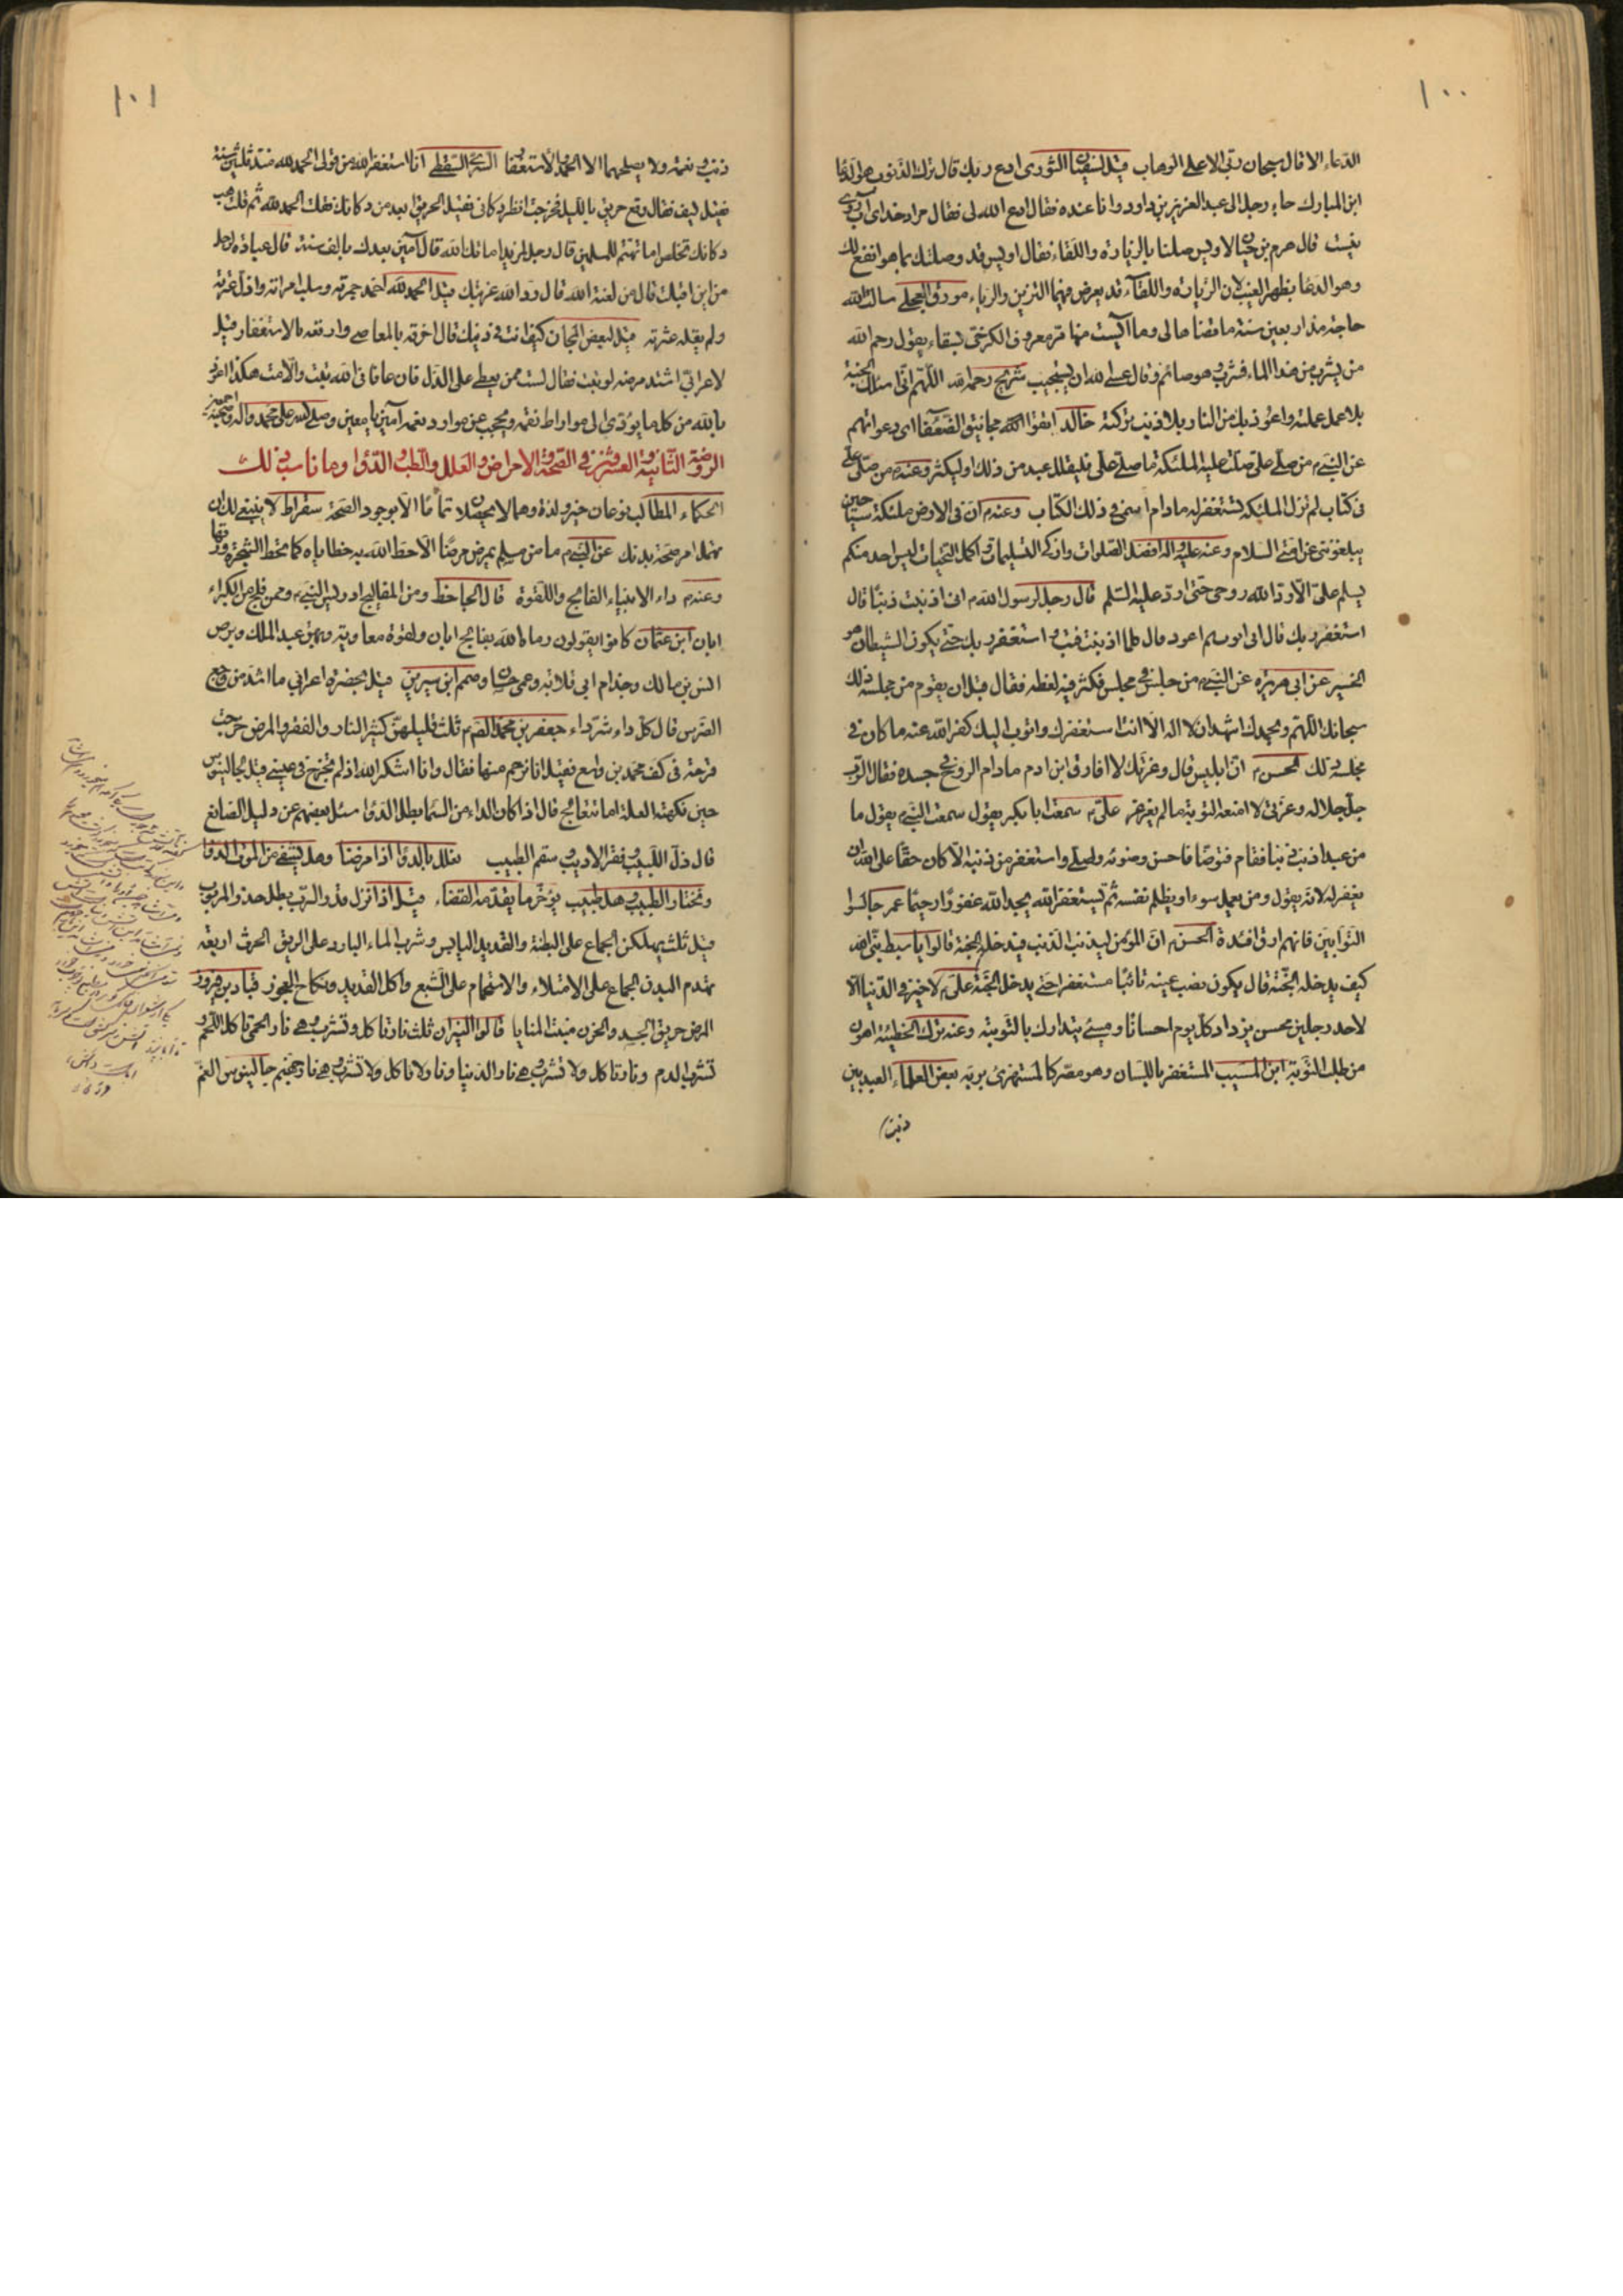 ١٠٠
الدعاء الا قال سبحان ربي الاعلى الوهاب قيل لسفين الثورى ادع ربك قال ترك الذنوب هو الدعا
ابن المبارك جاء رجل الى عبد العزيز بن داود وانا عنده فقال ادع الله لى فقال مرا در خداى آب روى
نيست قال هرم بن حيان لاويس صلنا بالزيارة واللقاء فقال اويس قد وصلتك بما هو انفع لك
وهو الدعا بظهر الغيب لان الزيارة واللقآء قد يعرض فيهما التزين والرياء مورق العجلى سالت الله
حاجة منذ اربعين سنة ما قضاها لى وما آيست منها مر معروف الكرخى بسقاء يقول رحم الله
من يشرب من هذا الماء فشرب وهو صائم وقال عسى الله ان يستجيب شريح رحمه الله اللهم انى اسئلك الجنة
بلا عمل عملته واعوذ بك من النار بلا ذنب تركته خالد اتقوا الله مجانيق الضعفآ اى دعواتهم
عن النبى م من صلى على صلت عليه الملئكة ما صلى على فليقلل عبد من ذلك او ليكثر وعنه م من صلى على
فى كتاب لم تزل الملئكة تستغفر له مادام اسمى فى ذلك الكتاب وعنه م ان فى الارض ملئكة سياحين
يبلغونى عن امتى السلام وعنه عليه واله افضل الصلوات وازكى التسليمات واكمل التحيات ليس احد منكم
يسلم على الا رد الله روحى حتى ارد عليه السلم قال رجل لرسول الله م انى اذنبت ذنبا قال
استغفر ربك قال انى اتوب ثم اعود قال كلما اذنبت فتب واستغفر ربك حتى يكون الشيطان هو
الخسير عن ابى هريرة عن النبى م من جلس فى مجلس فكثر فيه لغطه فقال قبل ان يقوم من مجلسه ذلك
سبحانك اللهم وبحمدك اشهد ان لا اله الا انت استغفرك واتوب اليك كفر الله عنه ما كان فى
مجلسه ذلك الحسن م ان ابليس قال وعزتك لا افارق ابن ادم مادام الروح فى جسده فقال الرب
جل جلاله وعزتى لا امنعه التوبة مالم يغرغر على م سمعت ابا بكر يقول سمعت النبى م يقول ما
من عبد اذنب ذنبا فقام فتوضا فاحسن وضوئه وصلى واستغفر من ذنبه الا كان حقا على الله ان
يغفر له لانه يقول ومن يعمل سوءا او يظلم نفسه ثم يستغفر الله يجد الله غفورا رحيما عمر جالسوا
التوابين فانهم ارق افئدة الحسن م ان المؤمن ليذنب الذنب فيدخله الجنة قالوا يا سبط نبى الله
كيف يدخله الجنة قال يكون نصب عينه تائبا مستغفرا حتى يدخل الجنة على م لا خير فى الدنيا الا
لاحد رجلين محسن يزداد كل يوم احسانا ومسئ يتدارك بالتوبة وعنه ترك الخطيئة اهون
من طلب التوبة ابن المسيب المستغفر باللسان وهو مصر كالمستهزئ بربه بعض العلماء العبد بين
ذنب
١٠١
ذنب ونعمة ولا يصلحهما الا الحمد والاستغفا السرى السقطى انا استغفر الله من قولى الحمد لله منذ ثلثين سنة
فقيل كيف فقال وقع حريق بالليل فخرجت انظر دكانى فقيل الحريق بعيد من دكانك فقلت الحمد لله ثم قلت هب
دكانك تخلص اما تهتم للمسلمين قال رجل لمزيد اماتك الله قال آمين بعدك بالف سنة قال عبادة لرجل
من اين اقبلت قال من لعنة الله قال رد الله غربتك
ولم يقله عثرته قيل لبعض المجان كيف انت فى دينك قال اخرقه بالمعاصى وارقعه بالاستغفار قيل
لاعرابى اشتد مرضه لو تبت فقال لست ممن يعطى على الذل فان عافانى الله تبت والا امت هكذا اعوذ
بالله من كل ما يؤدى الى
الروضة الثانية والعشرون فى الصحة والامراض والعلل والطب والدوا وما ناسب ذلك
الحكماء المطالب نوعان خير ولذة وهما لا يحصلان تماما الا بوجود الصحة سقراط لا ينبغى لك ان
تهمل امر صحة بدنك عن النبى م ما من مسلم يمرض مرضا الا حط الله به خطاياه كما تحط الشجرة ورقها
وعنه م داء الانبياء الفالج واللقوة قال الجاحظ ومن المفاليج ادريس النبى م وممن فلج من الكبراء
ابان ابن عثمان كانوا يقولون رماه الله بفالج ابان ولقوة معاوية وبهق عبد الملك وبرص
انس بن مالك وجذام ابى قلابه وعمى حسان وصمم ابن سيرين قيل بحضرة اعرابى ما اشد من وجع
الضرس قال كل داء شر داء جعفر بن محمد الص م ثلث قليلهن كثير النار والفقر والمرض خرجت
قرحة فى كف محمد بن واسع فقيل انا نرحم منها فقال وانا اشكر الله اذ لم تخرج فى عينى قيل لجالينوس
حين نهكته العلة اما تتعالج قال اذا كان الداء من السما بطل الدوا سئل بعضهم عن دليل الصانع
قال ذل اللبيب وفقر الاديب وسقم الطبيب نعلل بالدوا اذا مرضنا وهل يشفى من الموت الدوا
ونختار الطبيب وهل طبيب يؤخر ما يقدمه القضاء قيل اذا نزل قدر الرب بطل حذر المربوب
قيل ثلث يهلكن الجماع على البطنة والقديد اليابس وشرب الماء البارد على الريق الحرث اربعة
تهدم البدن الجماع على الامتلاء والاستحمام على الشبع واكل القديد ونكاح العجوز قباد بن فيروز
المرض حريق الجسد والحزن منبت المنايا قالوا النيران ثلث نار تاكل وتشرب وهى نار الحمى تاكل اللحم و
تشرب الدم ونار تاكل ولا تشرب وهى نار الدنيا ونار لا تاكل ولا تشرب وهى نار جهنم جالينوس الغم